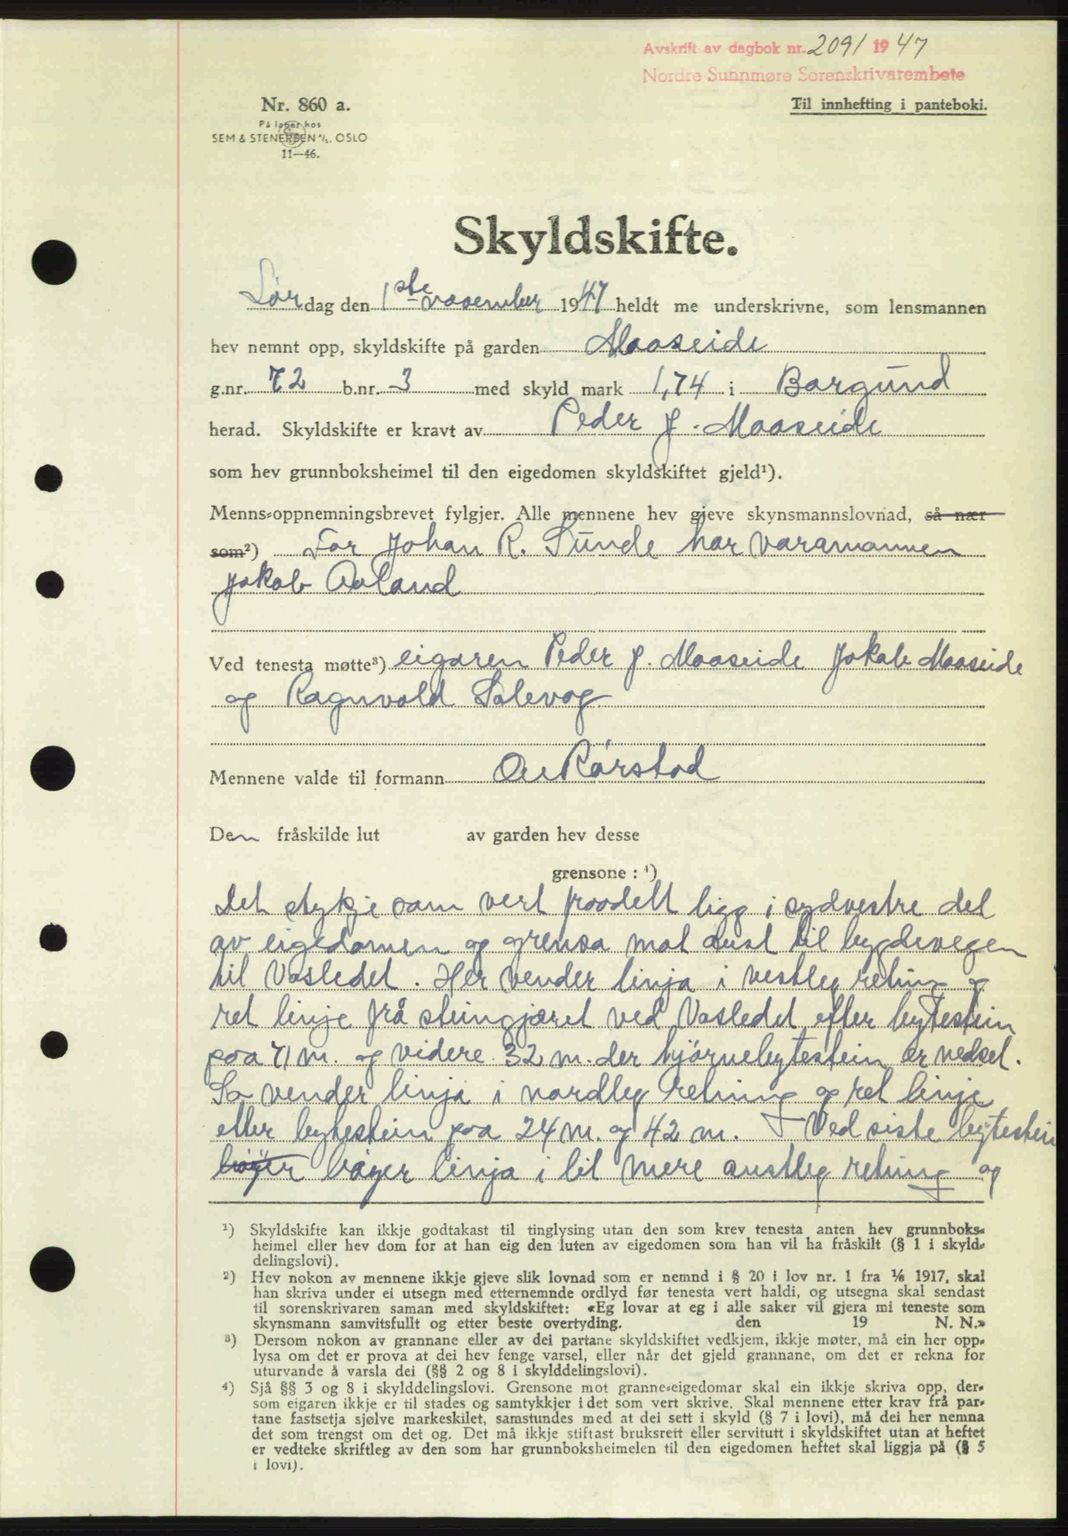 Avskrift av dagbok nr. 2091 1947
Nordre Sunnmøre Sorenskrivarembete
Nr. 860 a.
Til innhefting i panteboki.
På lager hos
SEM & STENERSEN A/S, OSLO
11—46.
Skyldskifte.
Lørdag den 1ste november 1947 heldt me underskrivne, som lensmannen
hev nemnt opp, skyldskifte på garden Maaseide
g.nr. 72 b.nr. 3 med skyld mark 1,74 i Borgund
herad. Skyldskifte er kravt av Peder J. Maaseide
som hev grunnboksheimel til den eigedomen skyldskiftet gjeld¹).
Menns-oppnemningsbrevet fylgjer. Alle mennene hev gjeve skynsmannslovnad, så nær
som²) For Johan R. Sunde har varamannen
Jakob Aaland
Ved tenesta møtte³) eigaren Peder J. Maaseide Jakob Maaseide
og Ragnvald Solevog
Mennene valde til formann Ole Rørstad
Den fråskilde lut av garden hev desse
grensone : ⁴)
Det stykje som vert fraadelt ligg i sydvestre del
av eigedomen og grensa mot aust til bygdevegen
til Vasledet. Her vender linja i vestleg retning og
ret linje frå steingjæret ved Vasledet efter bytestein
paa 71 m. og videre 32 m. der hjørnebytestein er nedset.
So vender linja i nordleg retning og ret linje
etter bytestein paa 24 m. og 42 m. Ved siste bytestein
bøyer bøyer linja i lit mere austleg retning og
¹) Skyldskifte kan ikkje godtakast til tinglysing utan den som krev tenesta anten hev grunnboks-
heimel eller hev dom for at han eig den luten av eigedomen som han vil ha fråskilt (§ 1 i skyld-
delingslovi).
²) Hev nokon av mennene ikkje gjeve slik lovnad som er nemnd i § 20 i lov nr. 1 fra ⅛ 1917, skal
han skriva under ei utsegn med etternemnde ordlyd før tenesta vert haldi, og utsegna skal sendast
til sorenskrivaren saman med skyldskiftet: «Eg lovar at eg i alle saker vil gjera mi teneste som
skynsmann samvitsfullt og etter beste overtyding. den 19 N. N.»
³) Dersom nokon av grannane eller av dei partane skyldskiftet vedkjem, ikkje møter, må ein her opp-
lysa om det er prova at dei hev fenge varsel, eller når det gjeld grannane, om det er rekna for
uturvande å varsla dei (§§ 2 og 8 i skylddelingslovi).
⁴) Sjå §§ 3 og 8 i skylddelingslovi. Grensone mot granne-eigedomar skal ein ikkje skriva opp, der-
som eigaren ikkje er til stades og samtykkjer i det som vert skrive. Skal mennene etter krav frå par-
tane fastsetja sjølve markeskilet, samstundes med at dei sett i skyld (§ 7 i lovi), må dei her nemna
det som trengst om det og. Det må ikkje stiftast bruksrett eller servitutt i skyldskiftet utan at heftet
er vedteke skriftleg av den som har grunnboksheimelen til den eigedomen heftet skal liggja på (§ 5
i lovi).